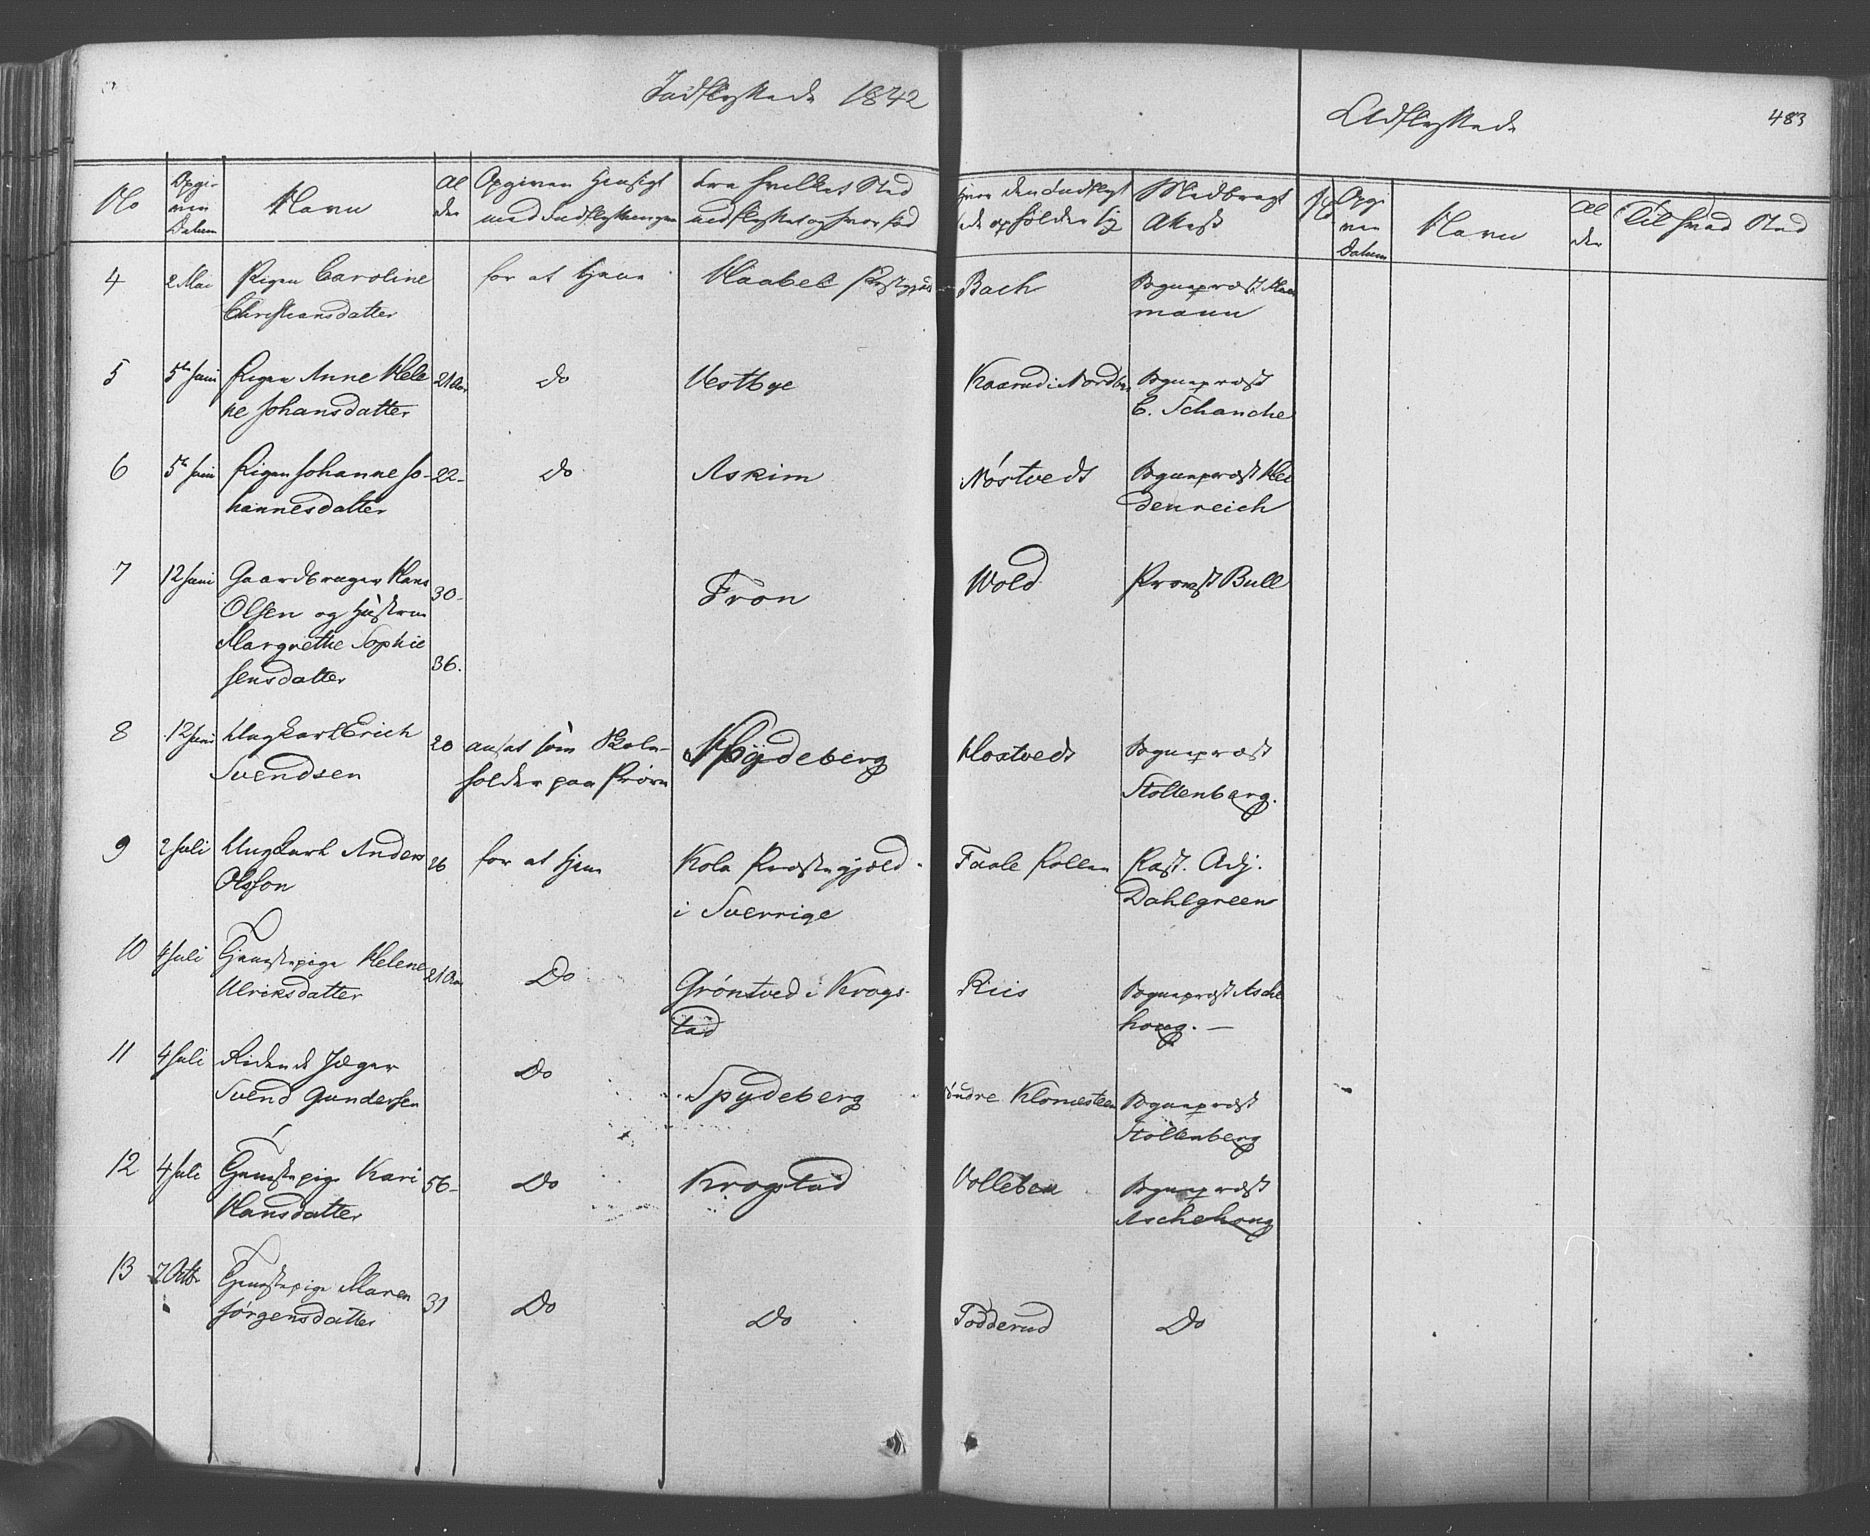 Indflyttede 1842
Udflyttede
483
No
Opgiven Datum
Navn
Alder
Opgiven Hensigt med Indflytningen
Fra hvilket Sted indflyttet og hvor fød
Hvor den Indflyttede opholder sig
Medbragt Attest
No
Opgiven Datum
Navn
Alder
Til hvad Sted
4 2 Mai Pigen Caroline for at tjene Haabel Bach Sognepræst
Christiansdatter mann
5 5te Juni Pigen Anne Hele 21 Aar do Vestbye Kaarud i Nordby Sognepræst
ne Johansdatter C. Schanche
6 5te Juni Pigen Johanne Jo- 22- do Askim Nøstvedt Sognepræst Hei
hannesdatter denreich
7 12 Juni Gaardbruger Hans 30- Fron Wold Provst Bull
Olsen og Hustrue
Margrethe Sophie 36.
Jensdatter
8 12 Juni Ungkarl Erich 20 ansat som Skole- Spydeberg Nostvedt Sognepræst
Svendsen holder paa Prøve Stoltenberg.
9 2 Juli Ungkarl Anders 26 for at tjene Kola Præstegjæld Faale Pollen Past. Adj.
Olsson i Sverrige Dahlgreen
10 4 Juli Tjenestepige Helene 21 Aar Do Grøntved i Krogs- Riis Sognepræst Asche
Ulriksdatter tad houg. —
11 4 Juli Ridende Jæger Do Spydeberg Søndre Klomesteen Sognepræst
Svend Gundersen Stoltenberg
12 4 Juli Tjenestepige Kari 56- Do Krogstad Volleben Sognepræst
Hansdatter Aschehoug
13 7 Octbr Tjenestepige Maren 31 Do Do Fødderud Do
Jørgensdatter